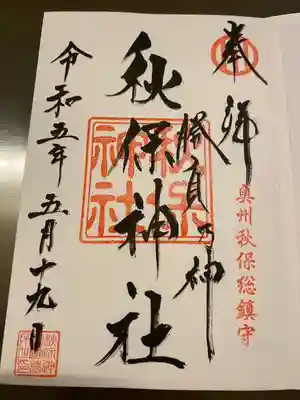 奉拝
奥州秋保総鎮守
勝負乃神
秋保神社
秋保神社
令和五年 五月十九日